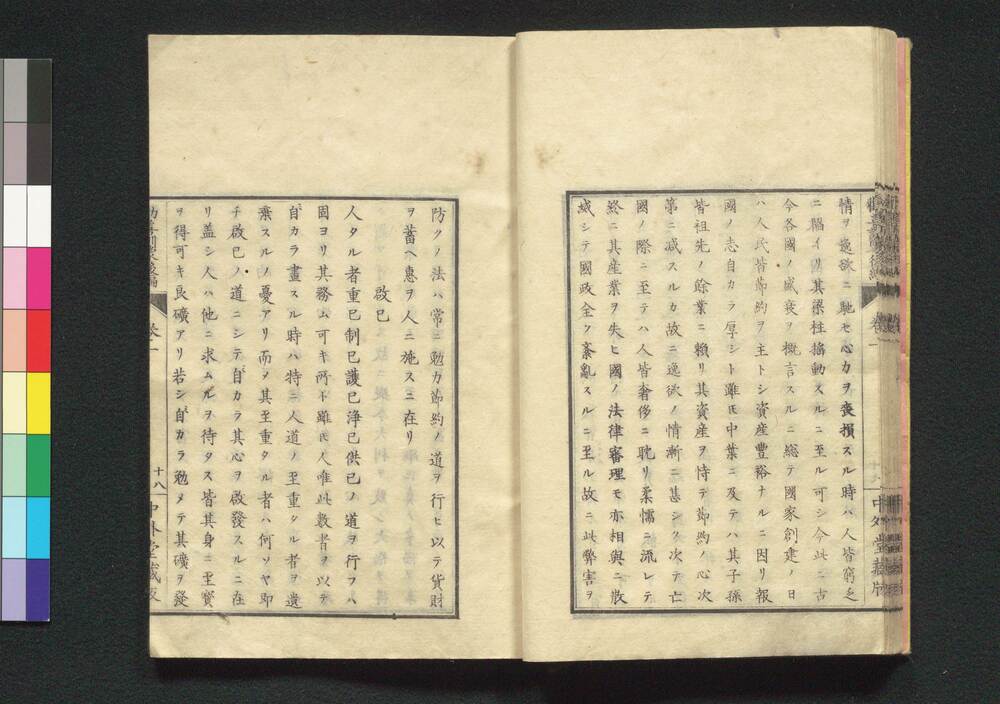 情ヲ逸欲ニ馳セ心力ヲ喪損スル時ハ人皆窮乏
ニ陷イリ國其梁柱搖動スルニ至ル可シ今此ニ古
今各國ノ盛衰ヲ概言スルニ総テ國家創建ノ日
ハ人民皆節約ヲ主トシ資産豊裕ナルニ因リ報
國ノ志自カラ厚シト雖𪜈中葉ニ及テハ其子孫
皆祖先ノ餘業ニ頼リ其資産ヲ恃テ節約ノ心次
第ニ减スルカ故ニ逸欲ノ情漸ニ甚シク次テ亡
國ノ際ニ至テハ人皆奢侈ニ耽リ柔懦ニ流レテ
終ニ其産業ヲ失ヒ國ノ法律審理モ亦相與ニ散
㓕シテ國政全ク紊亂スルニ至ル故ニ此弊害ヲ
防クノ法ハ常ニ勉力節約ノ道ヲ行ヒ以テ貨財
ヲ蓄ヘ惠ヲ人ニ施スニ在リ
啟已
人タル者重已制已護已浄已供已ノ道ヲ行フハ
固ヨリ其務ム可キ所ト雖𪜈人唯此數者ヲ以テ
自カラ畫スル時ハ特ニ人道ノ至重タル者ヲ遺
棄スルノ憂アリ而メ其至重タル者ハ何ソヤ即
チ啟已ノ道ニシテ自カラ其心ヲ啟發スルニ在
リ盖シ人ハ他ニ求ムルヲ待タス皆其身ニ至寳
ヲ得可キ良礦アリ若シ自カラ勉メテ其礦ヲ發
卷一
十八
中外堂藏版